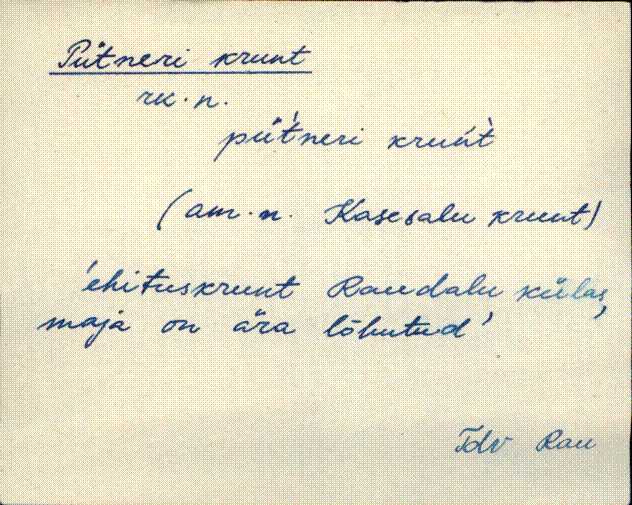 Pütneri krunt
rk. n.
püt́neri kruǹ̀t
(am. n. Kasesalu krunt)
'ehituskrunt Raudalu külas,
maja on ära lõhutud'
Tdv Rau